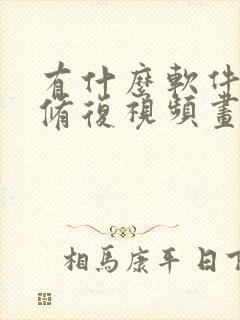 有什麼軟件
脩復視頻畫
相馬康平 日下